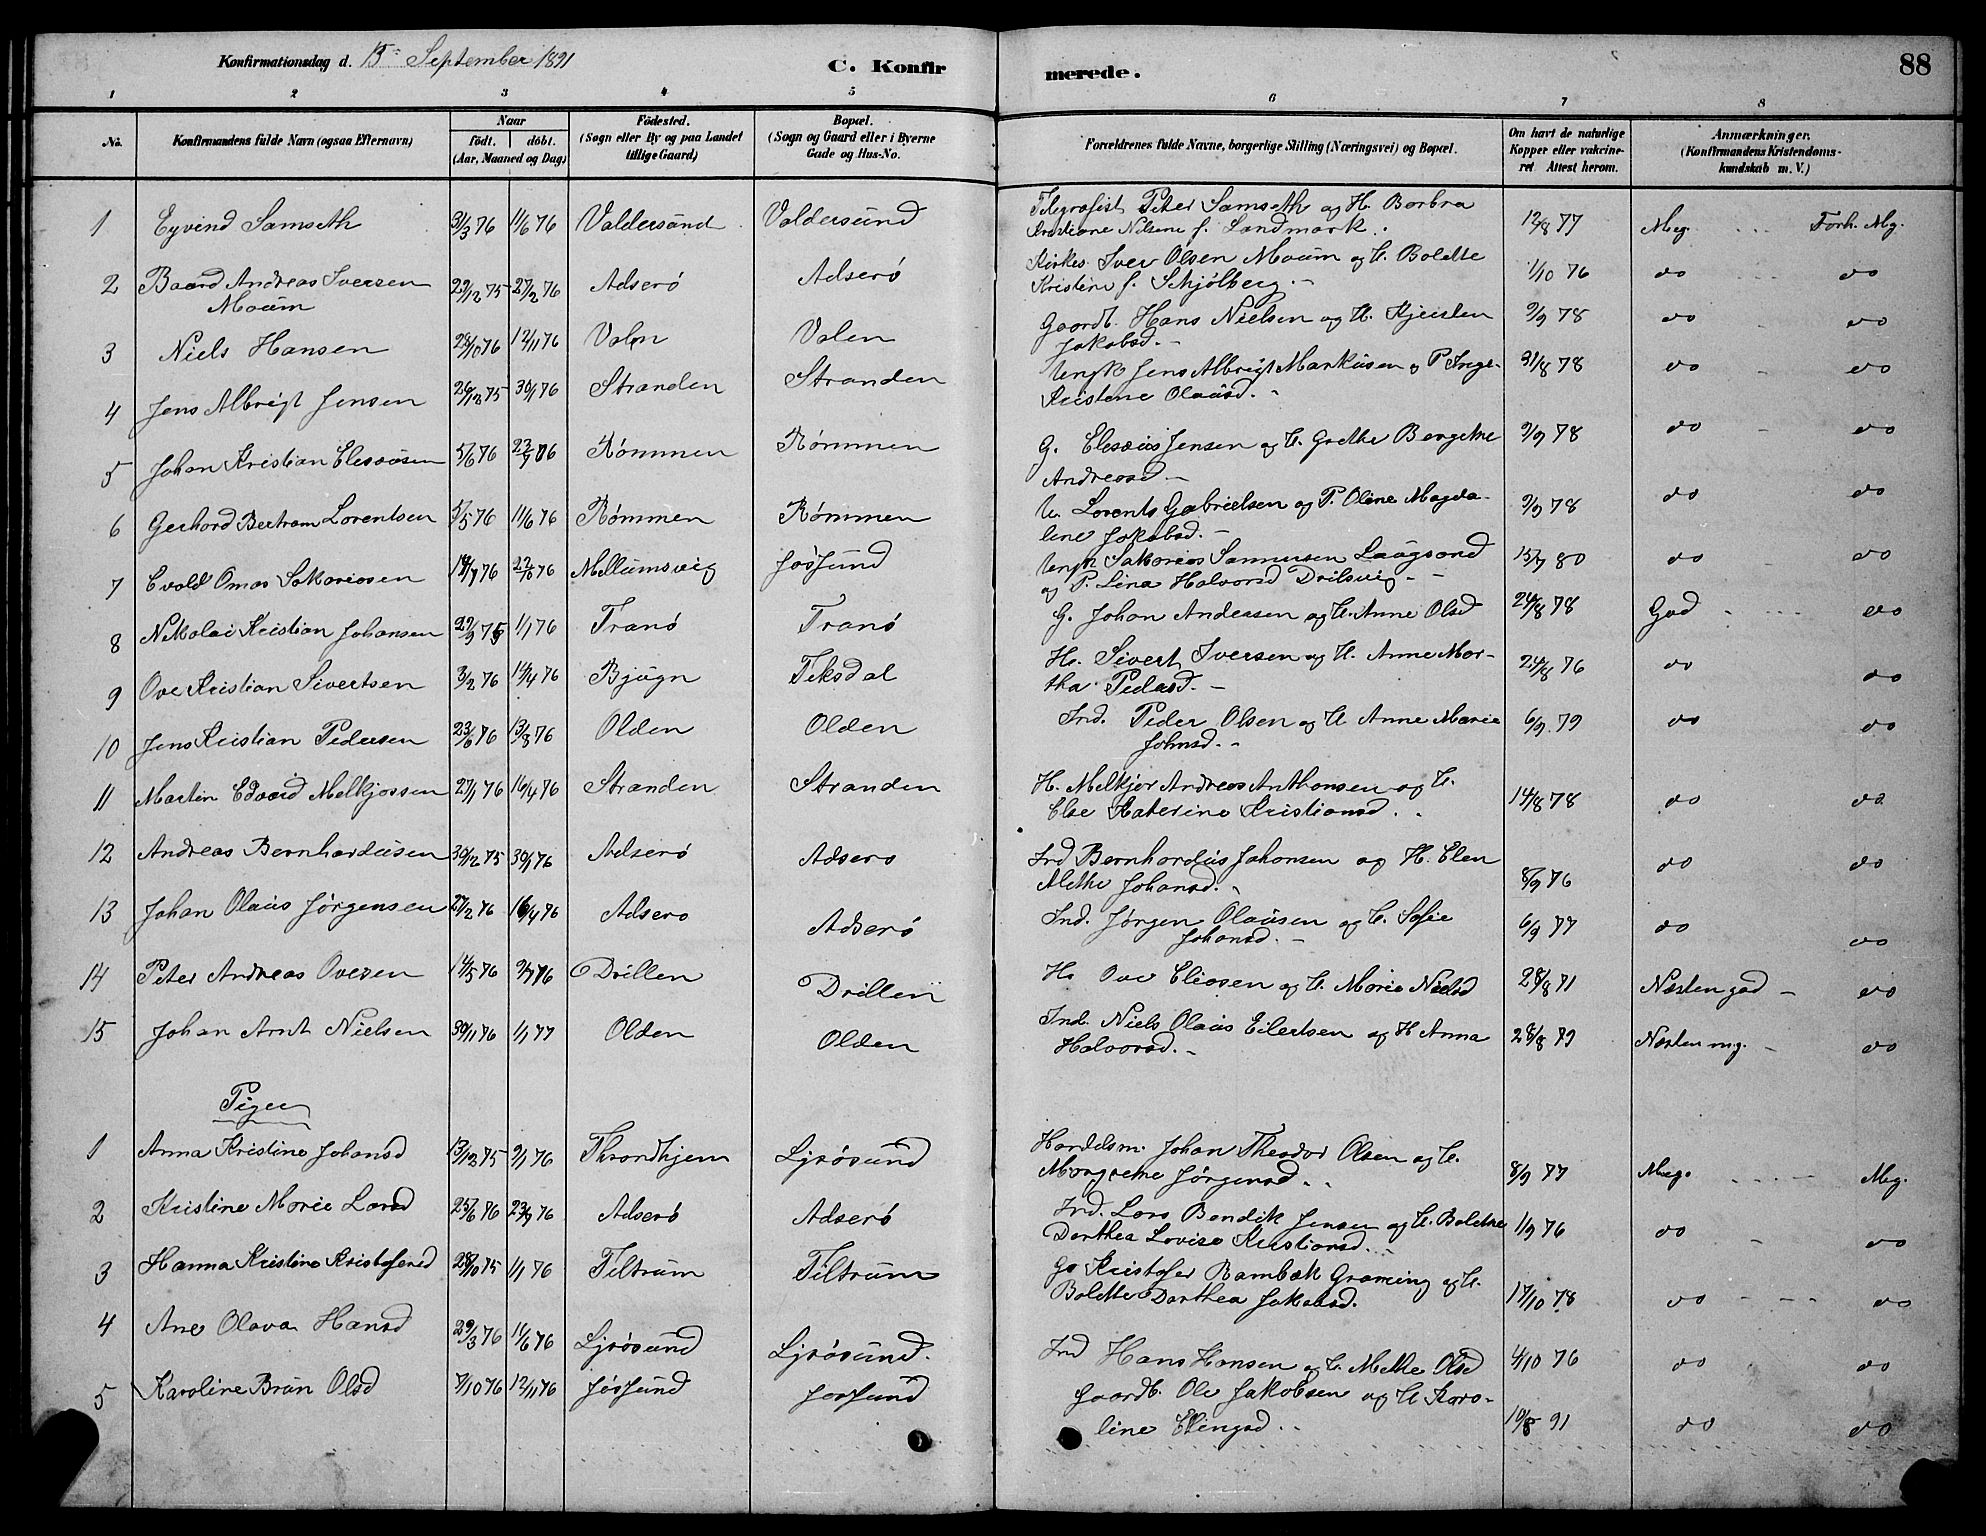 Konfirmationsdag d. 13 September 1891
C. Konfirmerede.
88
1 2 3 4 5 6 7 8
No.
Konfirmandens fulde Navn (ogsaa Efternavn)
Naar født. døbt. (Aar, Maaned og Dag)
Fødested. (Sogn eller By og paa Landet tillige Gaard)
Bopæl. (Sogn og Gaard eller i Byerne Gade og Hus-No.
Forældrenes fulde Navne, borgerlige Stilling (Næringsvei) og Bopæl.
Om havt de naturlige Kopper eller vakcineret Attest herom.
Anmærkninger. (Konfirmandens Kristendomskundskab m. V.)
1 Eyvind Samseth 31/3 76 11/6 76 Valdersund Valdersund Telegrafist Peter Samseth og H. Barbra Kristiane Nilsine f. Landmark. 12/8 77 Meg. Forh. Mg.
2 Baard Andreas Iversen Moum 29/12 75 27/2 76 Adserø Adserø Kirkes. Iver Olsen Moum og H. Boletте Kristine f. Schjølberg. 1/10 76 do do
3 Niels Hansen 28/10 76 12/11 76 Valen Valen Gaardb. Hans Nielsen og H. Kjersten Jakobsd. 9/9 78 do do
4 Jens Albrigt Jensen 26/12 75 30/1 76 Stranden Stranden Ungk Jens Albrigt Markusen og P. Inge- Kristine Olausd. 31/8 78 do do
5 Johan Kristian Eleseusen 5/6 76 23/7 76 Rømmen Rømmen G. Eleseus Jensen og H. Grethe Bergitte Andreasd 9/9 78 do do
6 Gerhard Bertram Lorentsen 5/5 76 11/6 76 Rømmen Rømmen U. Lorents Gabrielsen og P. Oline Magda- lene Jakobsd. 9/9 78 do do
7 Evald Omas Sakariasen 76 76 Mellumsvig Jøssund Ungk Sakarias Samuelsen Laugsand og P. Lina Halvorsd Drilsvig 80 do do
8 Nikolai Kristian Johansen 29/9 75 1/1 76 Tranø Tranø G. Johan Andersen og H. Anne Olsd 24/8 78 God do
9 Ove Kristian Sivertsen 3/2 76 76 Bjugn Teksdal Hs. Sivert Iversen og H. Anne Mar- tha Pedersd. 24/8 76 do do
10 Jens Kristian Pedersen 23/6 76 13/8 76 Olden Olden Ind. Peder Olsen og H. Anne Marie Johnsd. 6/9 79 do do
11 Martin Edvard Melkjorsen 27/1 76 16/4 76 Stranden Stranden H. Melkjor Andreas Anthonsen og H. Else Katerine Kristiansd. 14/8 78 do do
12 Andreas Bernhardusen 30/12 75 30/1 76 Adserø Adserø Ind Bernhardus Johansen og H. Elen Methe Johansd. 8/9 76 do do
13 Johan Olaus Jørgensen 27/2 76 16/4 76 Adserø Adserø Ind. Jørgen Olausen og H. Sofie Johansd. 6/9 77 do do
14 Peter Andreas Ovesen 14/5 76 9/7 76 Drillen Drillen Hs Ove Eliasen og H. Marie Nielsd 28/8 71 Næsten god do
15 Johan Arnt Nielsen 30/11 76 1/1 77 Olden Olden Ind. Niels Olaus Eilertsen og H Anna Halvorsd. 28/8 79 Næsten mg. do
Piger
1 Anna Kristine Johansd 13/12 75 9/1 76 Throndhjem Ljøsund Handelsm. Johan Theodor Olsen og H. Margrethe Jørgensd. 8/9 77 Meg. Mg.
2 Kristine Marie Larsd 25/6 76 76 Adserø Adserø Ind. Lars Bendik Jensen og H. Bolethe Dorthea Lovise Kristiansd. 1/9 76 do do
3 Hanna Kristine Kristofersd 28/10 75 1/1 76 Tiltrum Tiltrum Go Kristofer Rambæk Graming og H. Bolette Dorthea Jakobsd. 17/10 78 do do
4 Ane Olava Hansd 29/3 76 11/6 76 Ljøsund Ljøsund. Ind Hans Hansen og H. Methe Olsd 4/10 76 do do
5 Karoline Brun Olsd 7/10 76 12/11 76 Jøssund Jøssund Gaardb. Ole Jakobsen og H Karo- line Elingsd. 10/8 91 do do